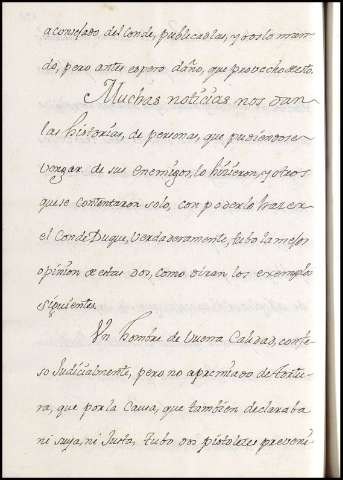 aconsejado, del Conde, publicarlas, y os lo man
do, pero antes espero daño, que provecho desto.
Muchas noticias nos dan
las historias, de personas, que pudiendose
vengar de sus enemigos, lo hiçieron, y otros
que se contentaron solo, con poderlo hazer
el Conde Duque, verdaderamente, tubo la mejor
opinion de estas dos, como diran los exemplos
siguientes.
Un hombre de buena Calidad, confe
so Judicialmente, pero no apremiado de tortu
ra, que por la Causa, que tambien declaraba
ni suya, ni Justa, tubo dos pistoletes preveni